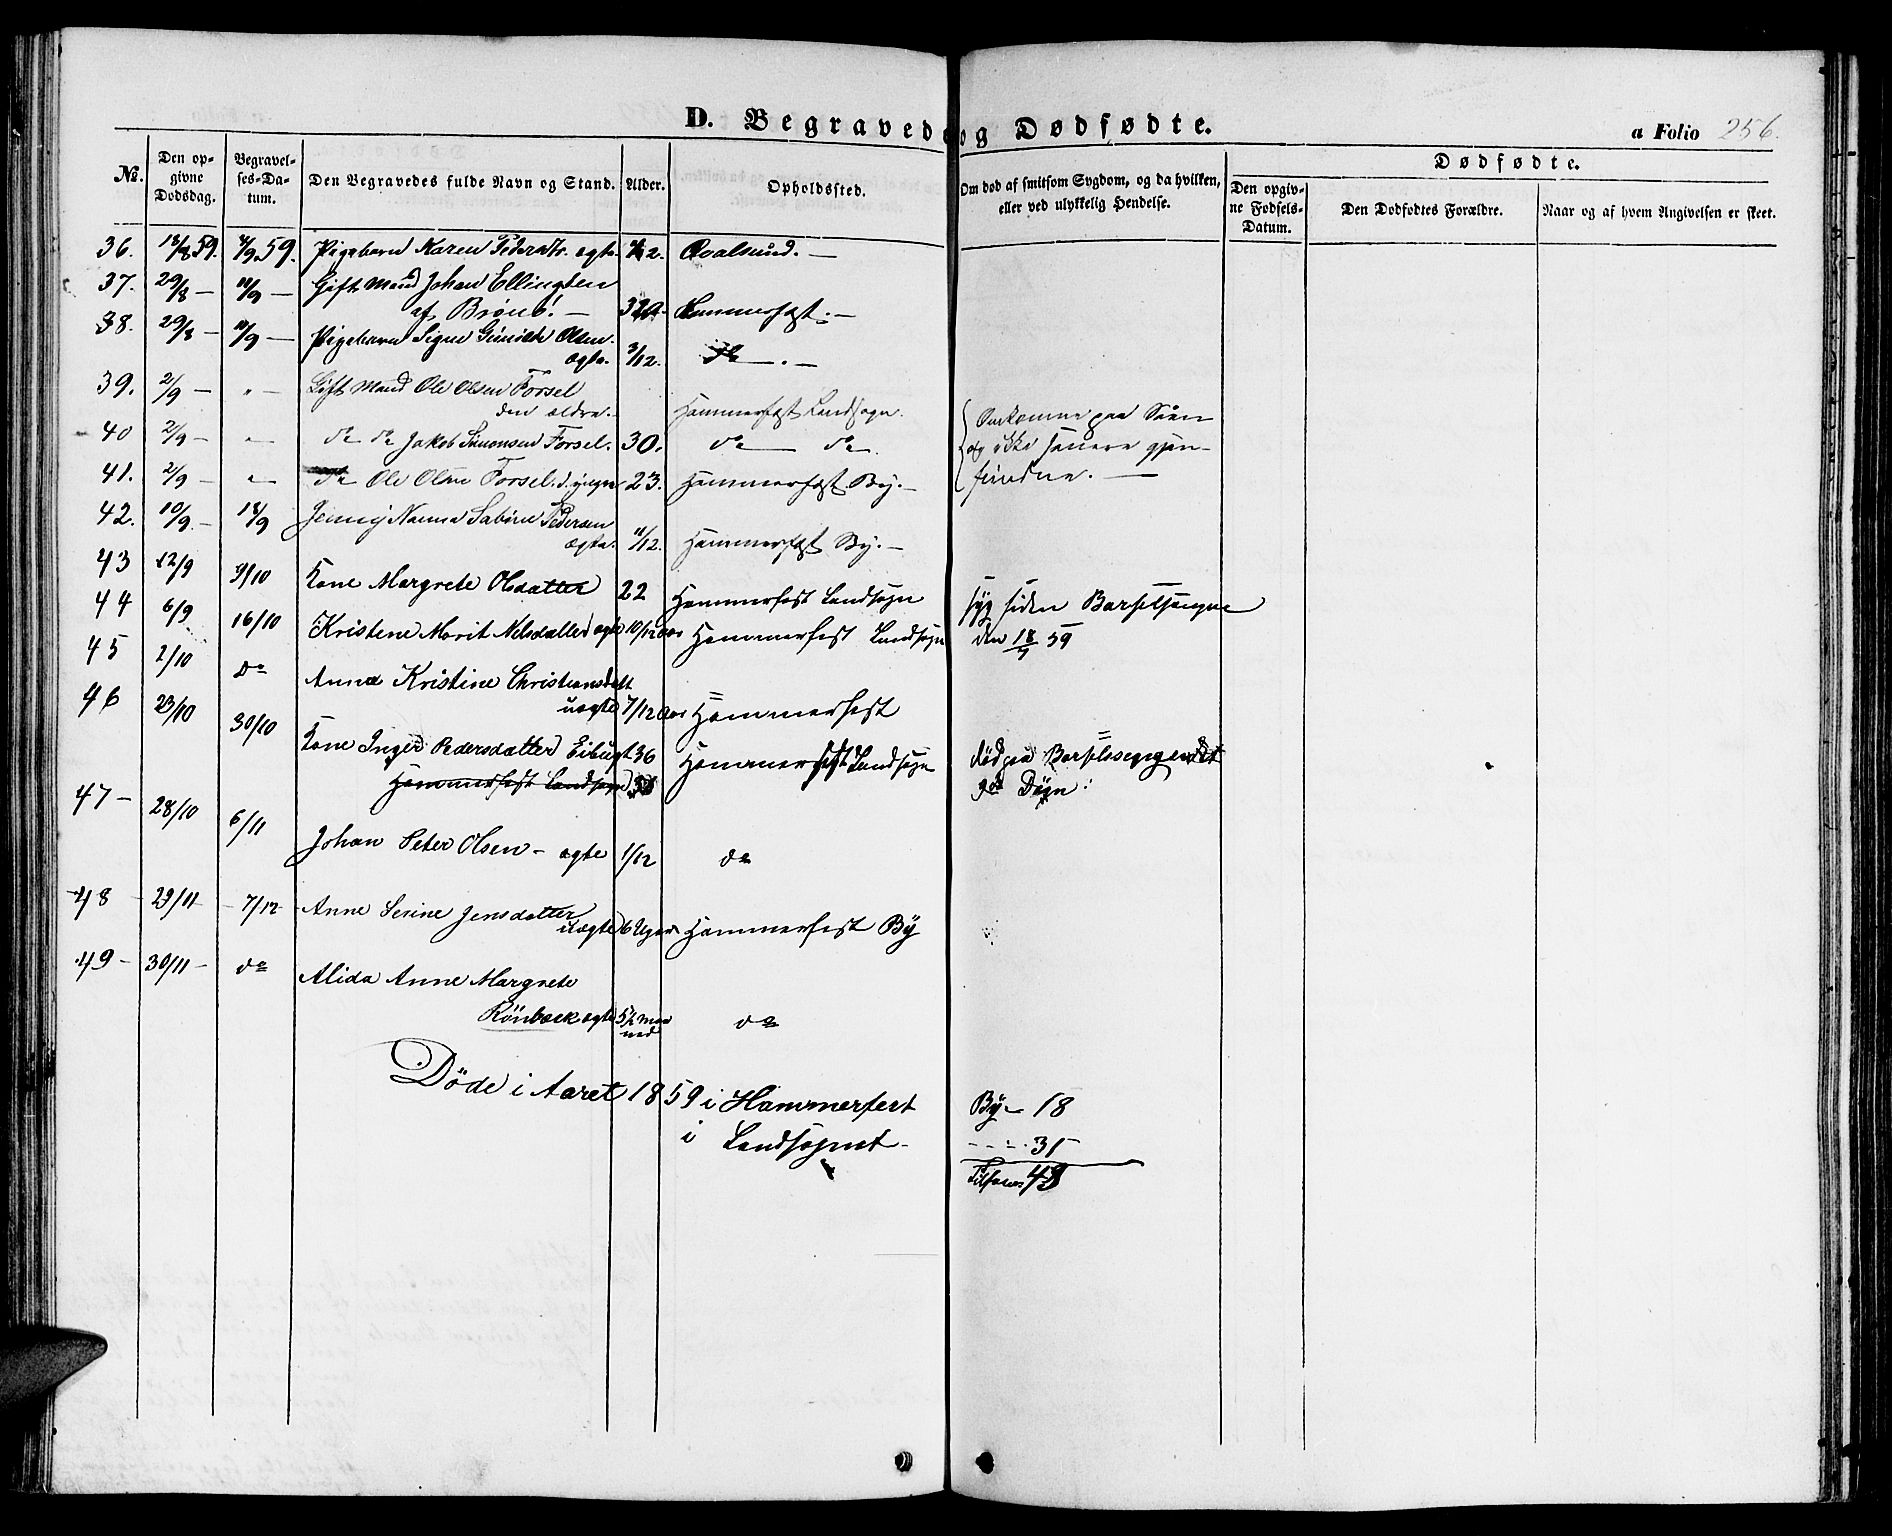 D. Begravede og Dødfødte.
a Folio 256.
No. Den opgivne Dødsdag. Begravelses-Datum. Den Begravedes fulde Navn og Stand. Alder. Opholdssted. Om død af smitsom Sygdom, og da hvilken, eller ved ulykkelig Hendelse.
Dødfødte.
Den opgivne Fødsels-Datum. Den Dødfødtes Forældre. Naar og af hvem Angivelsen er skeet.
36. 18/8 59. 4/9 59. Pigebarn Karen Pedersdtr. ægte Qvalsund. —
37. 29/8 — 11/9 — Gift Mand Johan Ellingsen
af 32 Hammerfest. —
38. 29/8 — 11/9 — Pigebarn Signe Olsen
ægte. 3/12. —
39. 2/9 — " — Gift Mand Ole Olsen Forsel
den ældre. Hammerfest Landsogn. Omkomne paa Søen
40 2/9 — " — do do Jakob Simonsen Forsel. 30. do — do og ikke senere gjen-
41. 2/9 — " — do Ole Olsen Forsel. d. yngre 23. Hammerfest By. — fundne. —
42. 10/9. — 18/9 Jenny Nanna Sabine Pedersen
ægte. 11/12. Hammerfest By. —
43 12/9 9/10 Kone Margrete Olsdatter 22 Hammerfest Landsogn syg siden Barselsengen
44 6/9 16/10 Kristene Marit Nelsdatter ægte 10/12 Aar Hammerfest Landsogn den 18/7 59
45 2/10 do Anna Kristine Christiansdatt
uægte 7/12 Aar Hammerfest
46 23/10 30/10 Kone Inger Pedersdatter Eibugt 36 Hammerfest Landsogn død paa Barselssengen det
Hammerfest Landsogn 9de Døgn.
47 — 28/10 6/11 Johan Peter Olsen — ægte 1/12 do
48 29/11 — 7/12 Anne Serine Jensdatter
uægte 6 Uger Hammerfest By
49 — 30/11 — do Alida Anne Margrete
Rönbæck ægte 5½ Maaned do
Döde i Aaret 1859 i Hammerfest By — 18
i Landsognet — 31
Tilsam. 49